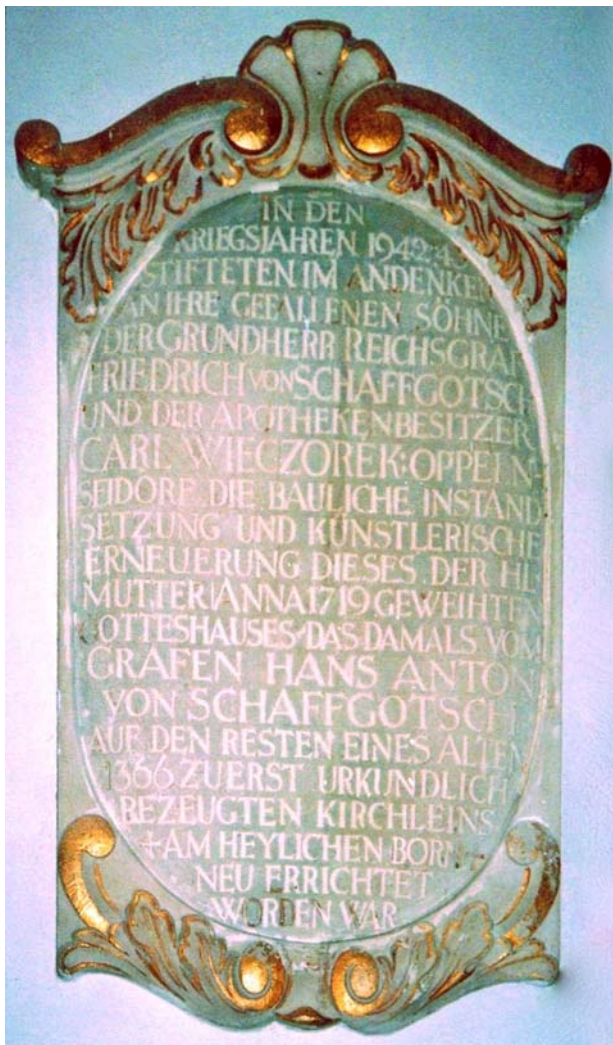 IN DEN
KRIEGSJAHREN 1942:43
STIFTETEN IM ANDENKEN
AN IHRE GEFALLENEN SÖHNE
DER GRUNDHERR REICHSGRAF
FRIEDRICH VON SCHAFFGOTSCH
UND DER APOTHEKENBESITZER
CARL WIECZOREK:OPPELN
SEIDORF DIE BAULICHE INSTAND
SETZUNG UND KÜNSTLERISCHE
ERNEUERUNG DIESES DER HL
MUTTER ANNA 1719 GEWEIHTEN
GOTTESHAUSES DAS DAMALS VOM
GRAFEN HANS ANTON
VON SCHAFFGOTSCH
AUF DEN RESTEN EINES ALTEN
1366 ZUERST URKUNDLICH
BEZEUGTEN KIRCHLEINS
+AM HEYLICHEN BORN+
NEU ERRICHTET
WORDEN WAR